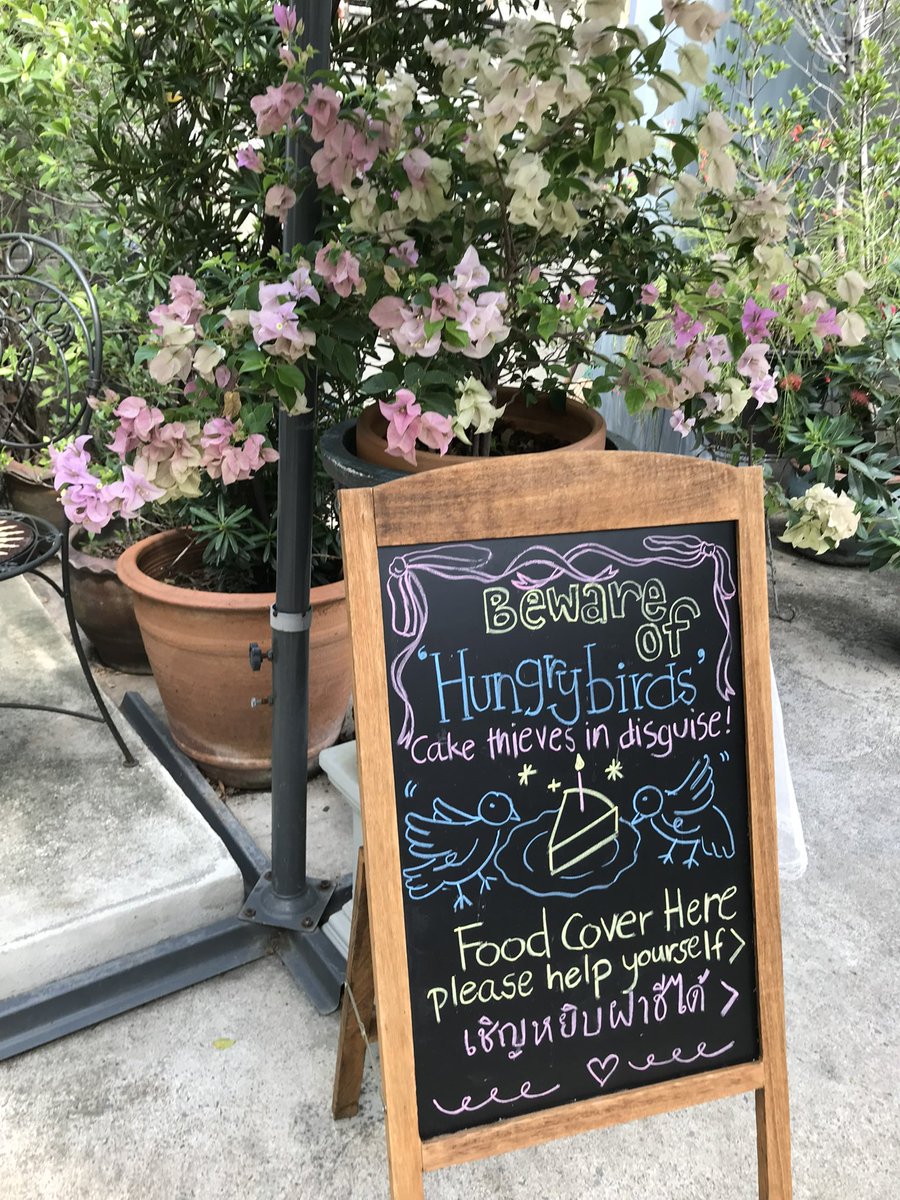 Beware
of
'Hungrybirds'
Cake thieves in disguise!
Food Cover Here
please help yourself >
เชิญหยิบฝาชีได้ >